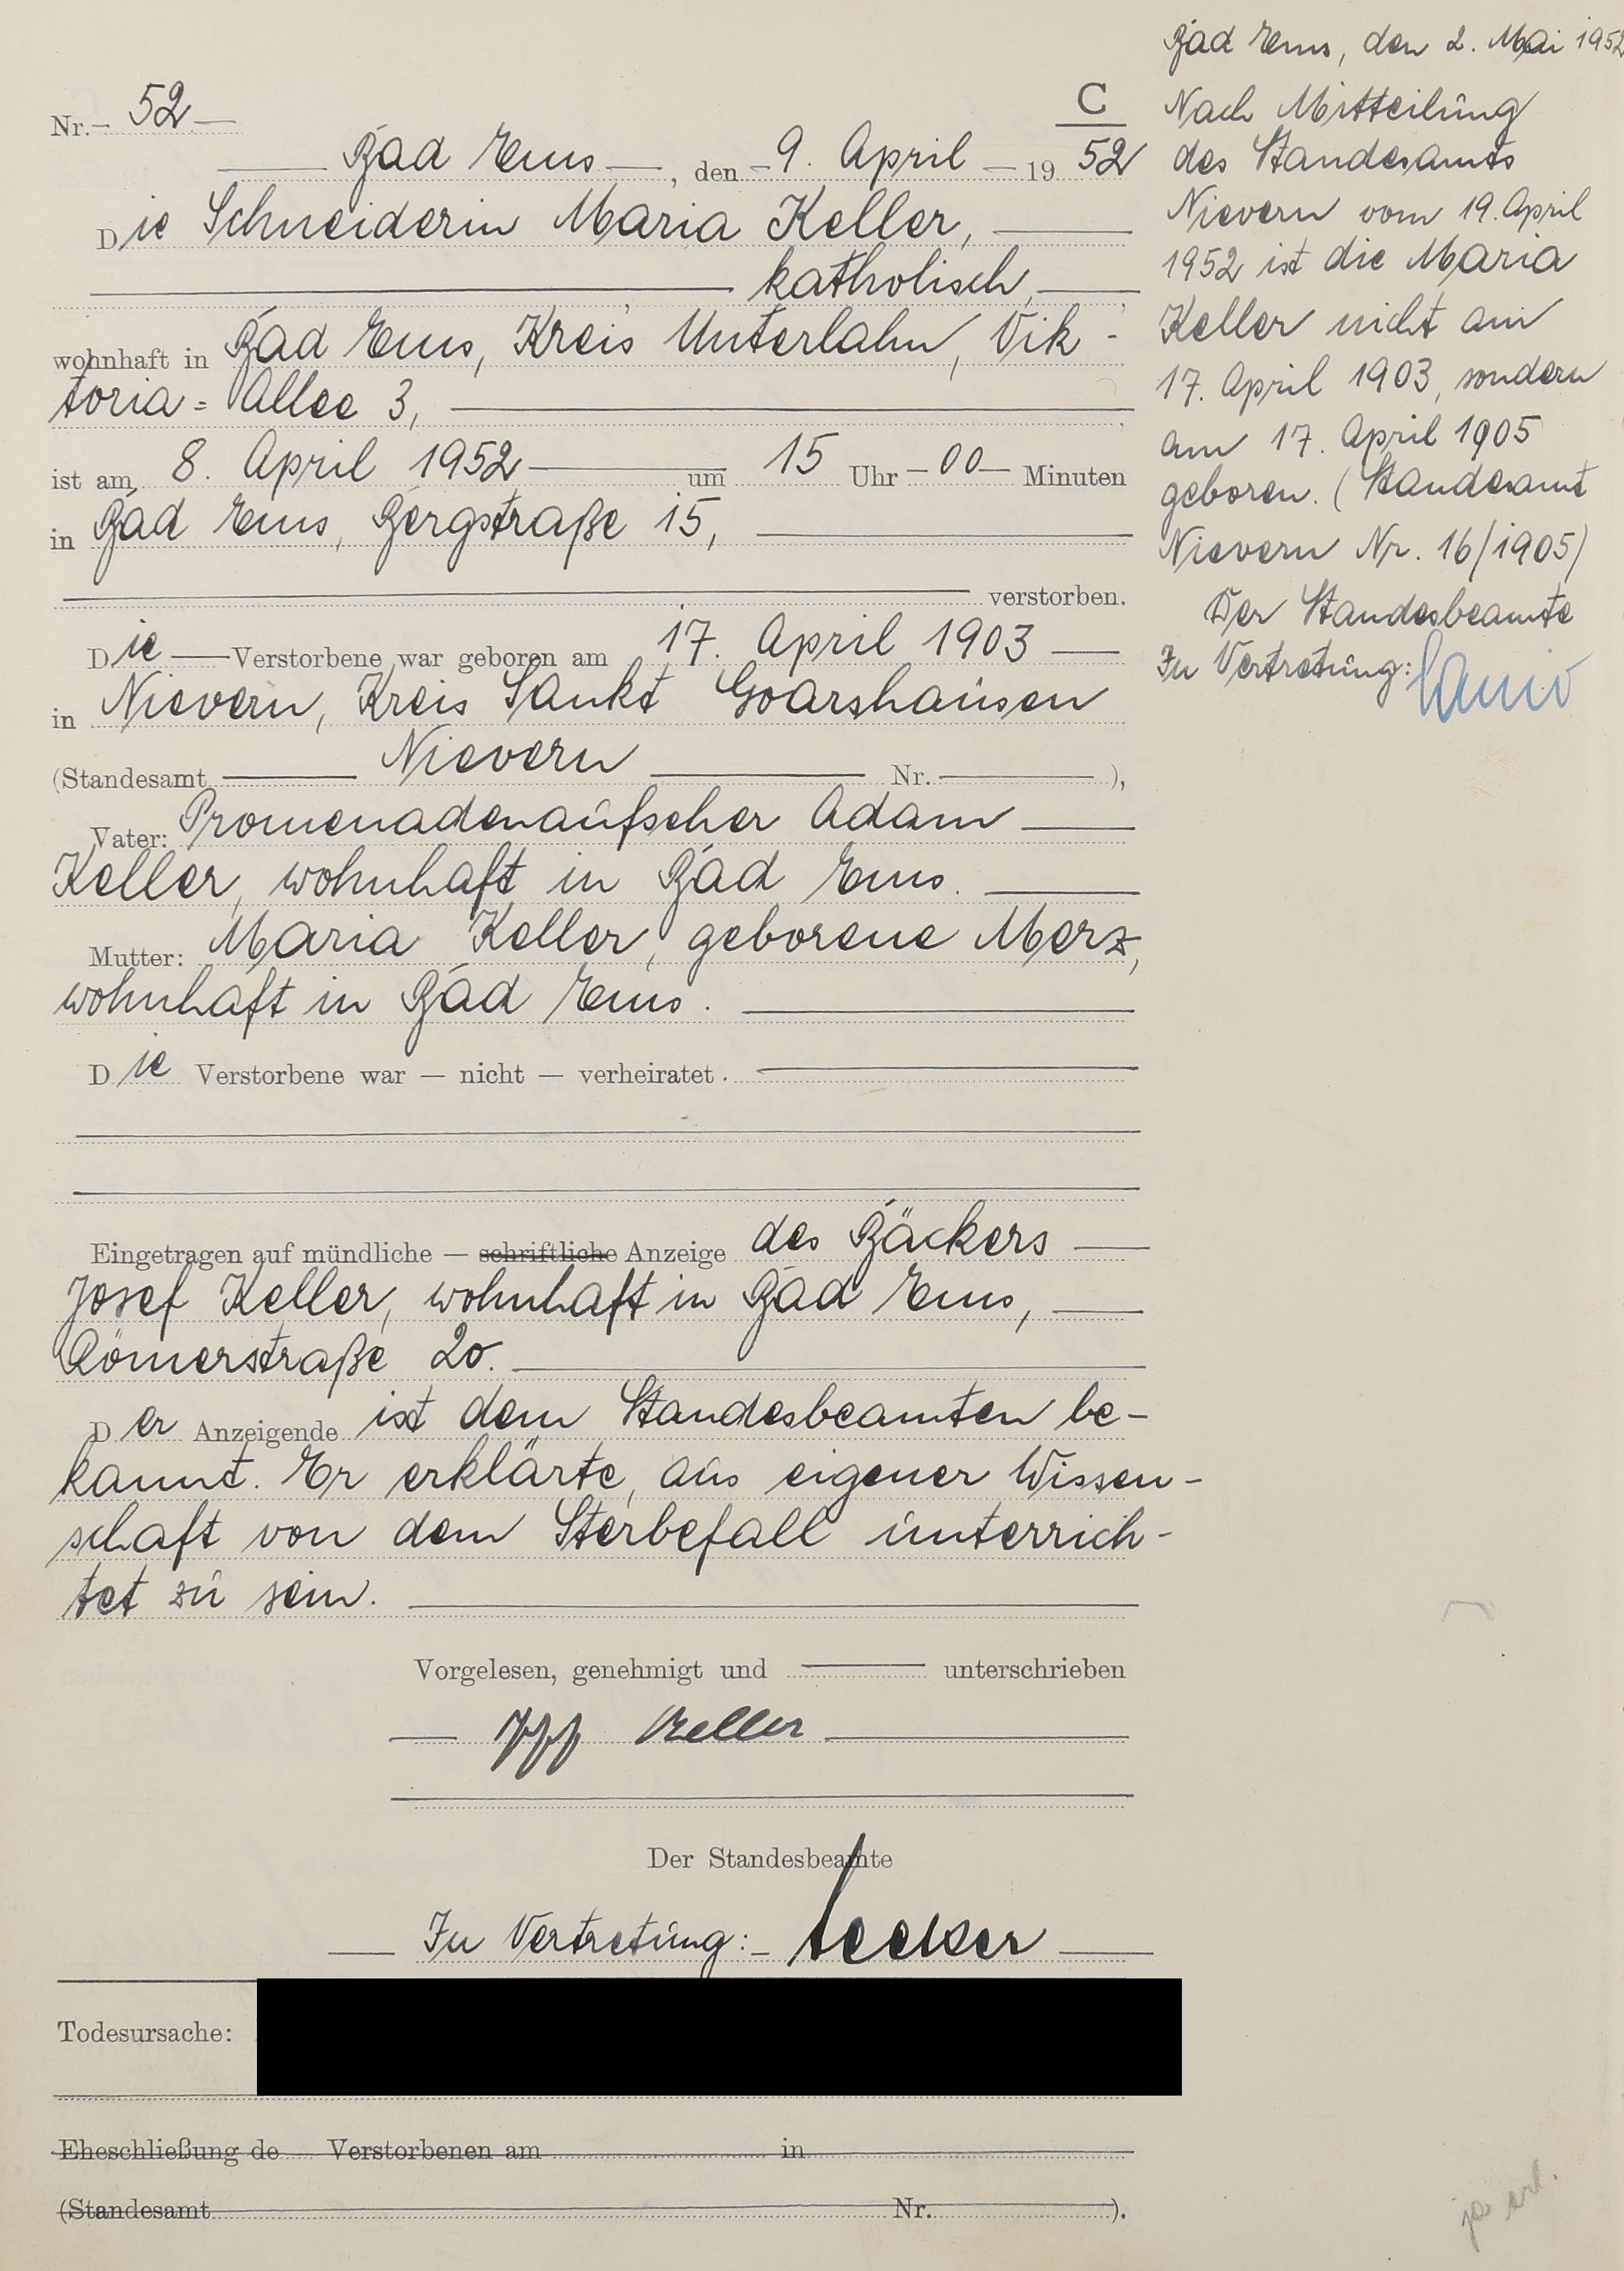 Nr. 52
C
Bad Ems, den 9. April 1952
Die Schneiderin Maria Keller,
katholisch,
wohnhaft in Bad Ems, Kreis Unterlahn, Vik-
toria=Allee 3,
ist am 8. April 1952 um 15 Uhr 00 Minuten
in Bad Ems, Bergstraße 15,
verstorben.
Die Verstorbene war geboren am 17. April 1903
in Nievern, Kreis Sankt Goarshausen
(Standesamt Nievern Nr. ),
Vater: Promenadenaufseher Adam
Keller, wohnhaft in Bad Ems.
Mutter: Maria Keller, geborene Merz,
wohnhaft in Bad Ems.
Die Verstorbene war — nicht — verheiratet.
Eingetragen auf mündliche — schriftliche Anzeige des Bäckers
Josef Keller, wohnhaft in Bad Ems,
Römerstraße 20.
Der Anzeigende ist dem Standesbeamten be-
kannt. Er erklärte, aus eigener Wissen-
schaft von dem Sterbefall unterrich-
tet zu sein.
Vorgelesen, genehmigt und unterschrieben
Keller
Der Standesbeamte
In Vertretung:
Todesursache:
Eheschließung de Verstorbenen am in
(Standesamt Nr. ).
Bad Ems, den 2. Mai 1952
Nach Mitteilung
des Standesamts
Nievern vom 19. April
1952 ist die Maria
Keller nicht am
17. April 1903, sondern
am 17. April 1905
geboren. (Standesamt
Nievern Nr. 16/1905)
Der Standesbeamte
In Vertretung: